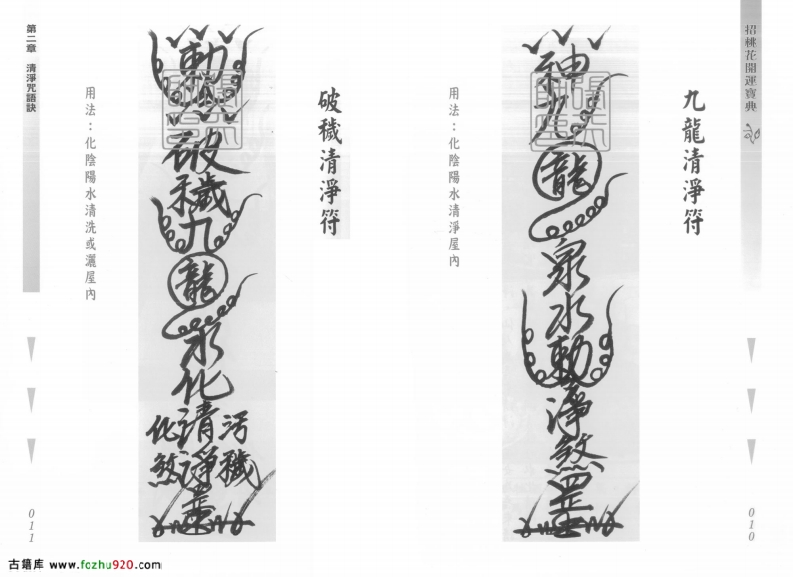 招桃花開運寶典
九龍清淨符
神
九
龍
泉水勅淨煞罡
用法：化陰陽水清淨屋內
010
破穢清淨符
勅
破穢九
龍
水化清淨
污穢
化煞
用法：化陰陽水清洗或灑屋內
第二章 清淨咒語訣
011
古籍库 www.fozhu920.com